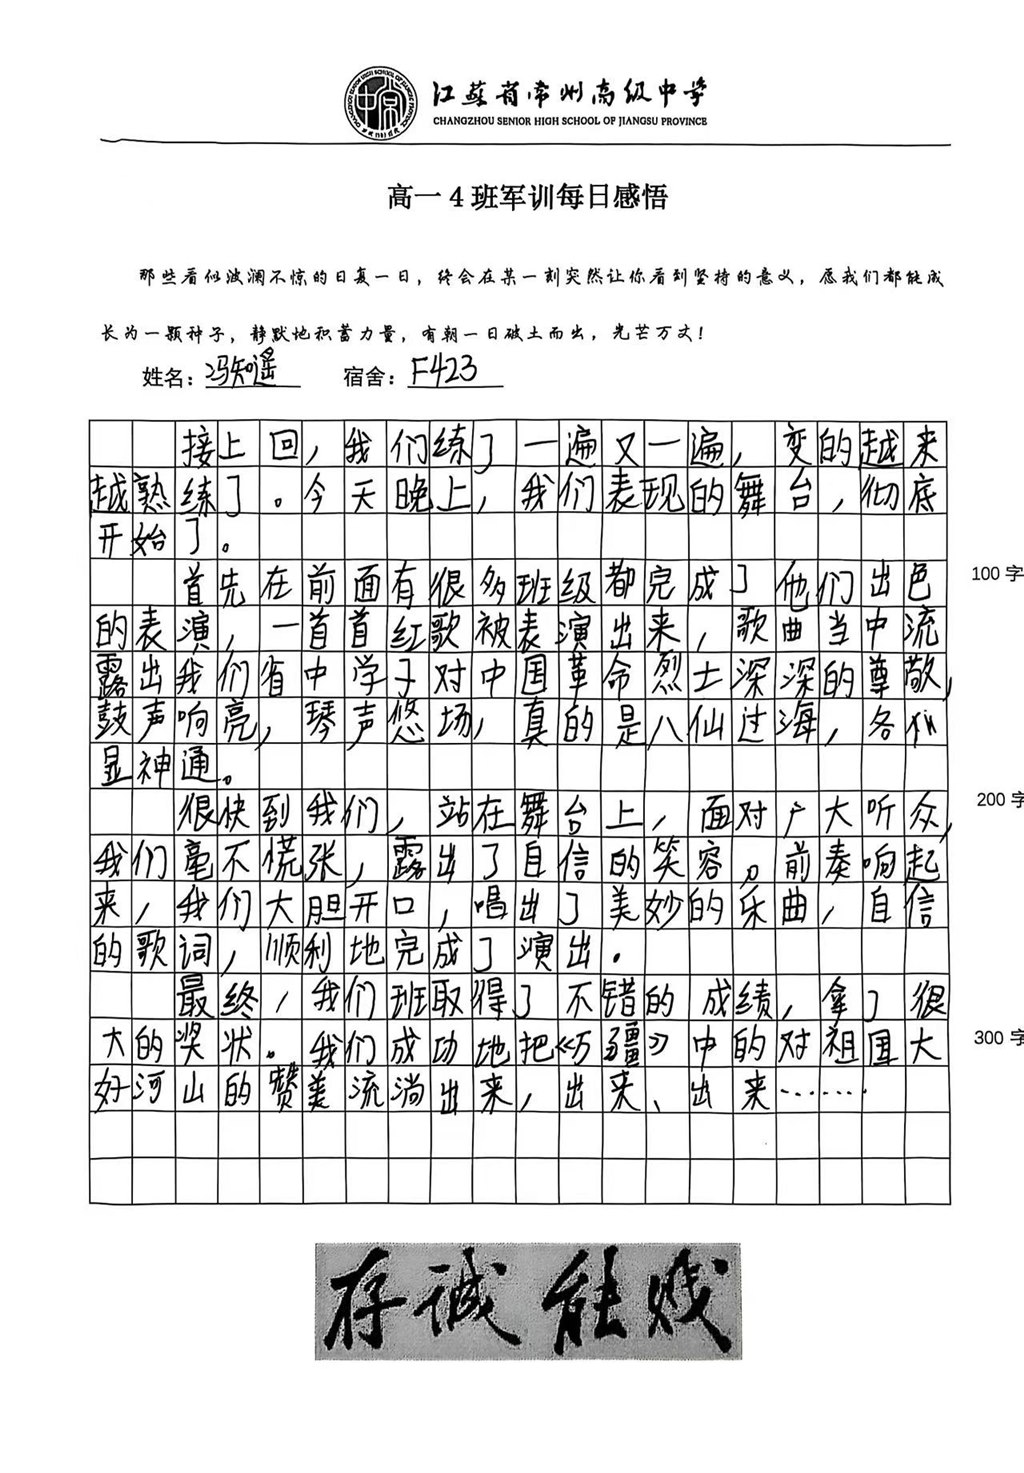 江苏省常州高级中学
CHANGZHOU SENIOR HIGH SCHOOL OF JIANGSU PROVINCE
高一4班军训每日感悟
那些看似波澜不惊的日复一日，终会在某一刻突然让你看到坚持的意义，愿我们都能成
长为一颗种子，静默地积蓄力量，有朝一日破土而出，光芒万丈！
姓名：冯知遥 宿舍：F423
接上回，我们练了一遍又一遍，变的越来
越熟练了。今天晚上，我们表现的舞台，彻底
开始了。
首先在前面有很多班级都完成了他们出色
100字
的表演，一首首红歌被表演出来，歌曲当中流
露出我们省中学子对中国革命烈士深深的尊敬，
鼓声响亮，琴声悠扬，真的是八仙过海，各
显神通。
很快到我们，站在舞台上，面对广大听众，
200字
我们毫不慌张，露出了自信的笑容。前奏响起
来，我们大胆开口，唱出了美妙的乐曲，自信
的歌词，顺利地完成了演出。
最终，我们班取得了不错的成绩，拿了很
大的奖状。我们成功地把《万疆》中的对祖国大
300字
好河山的赞美流淌出来，出来、出来……
存诚能贱